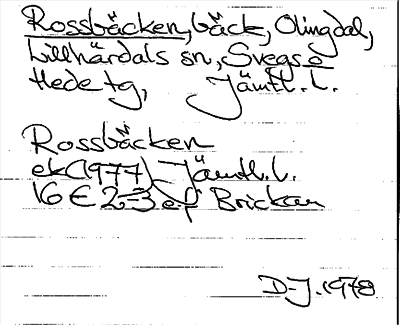 Rossbäcken, bäck, Olingdal,
Lillhärdals sn, Svegs o
Hede tg, Jämtl. l.
Rossbäcken
ek (1977) Jämtl. l.
16 E 2-3 ef Brickan
D-J. 1978